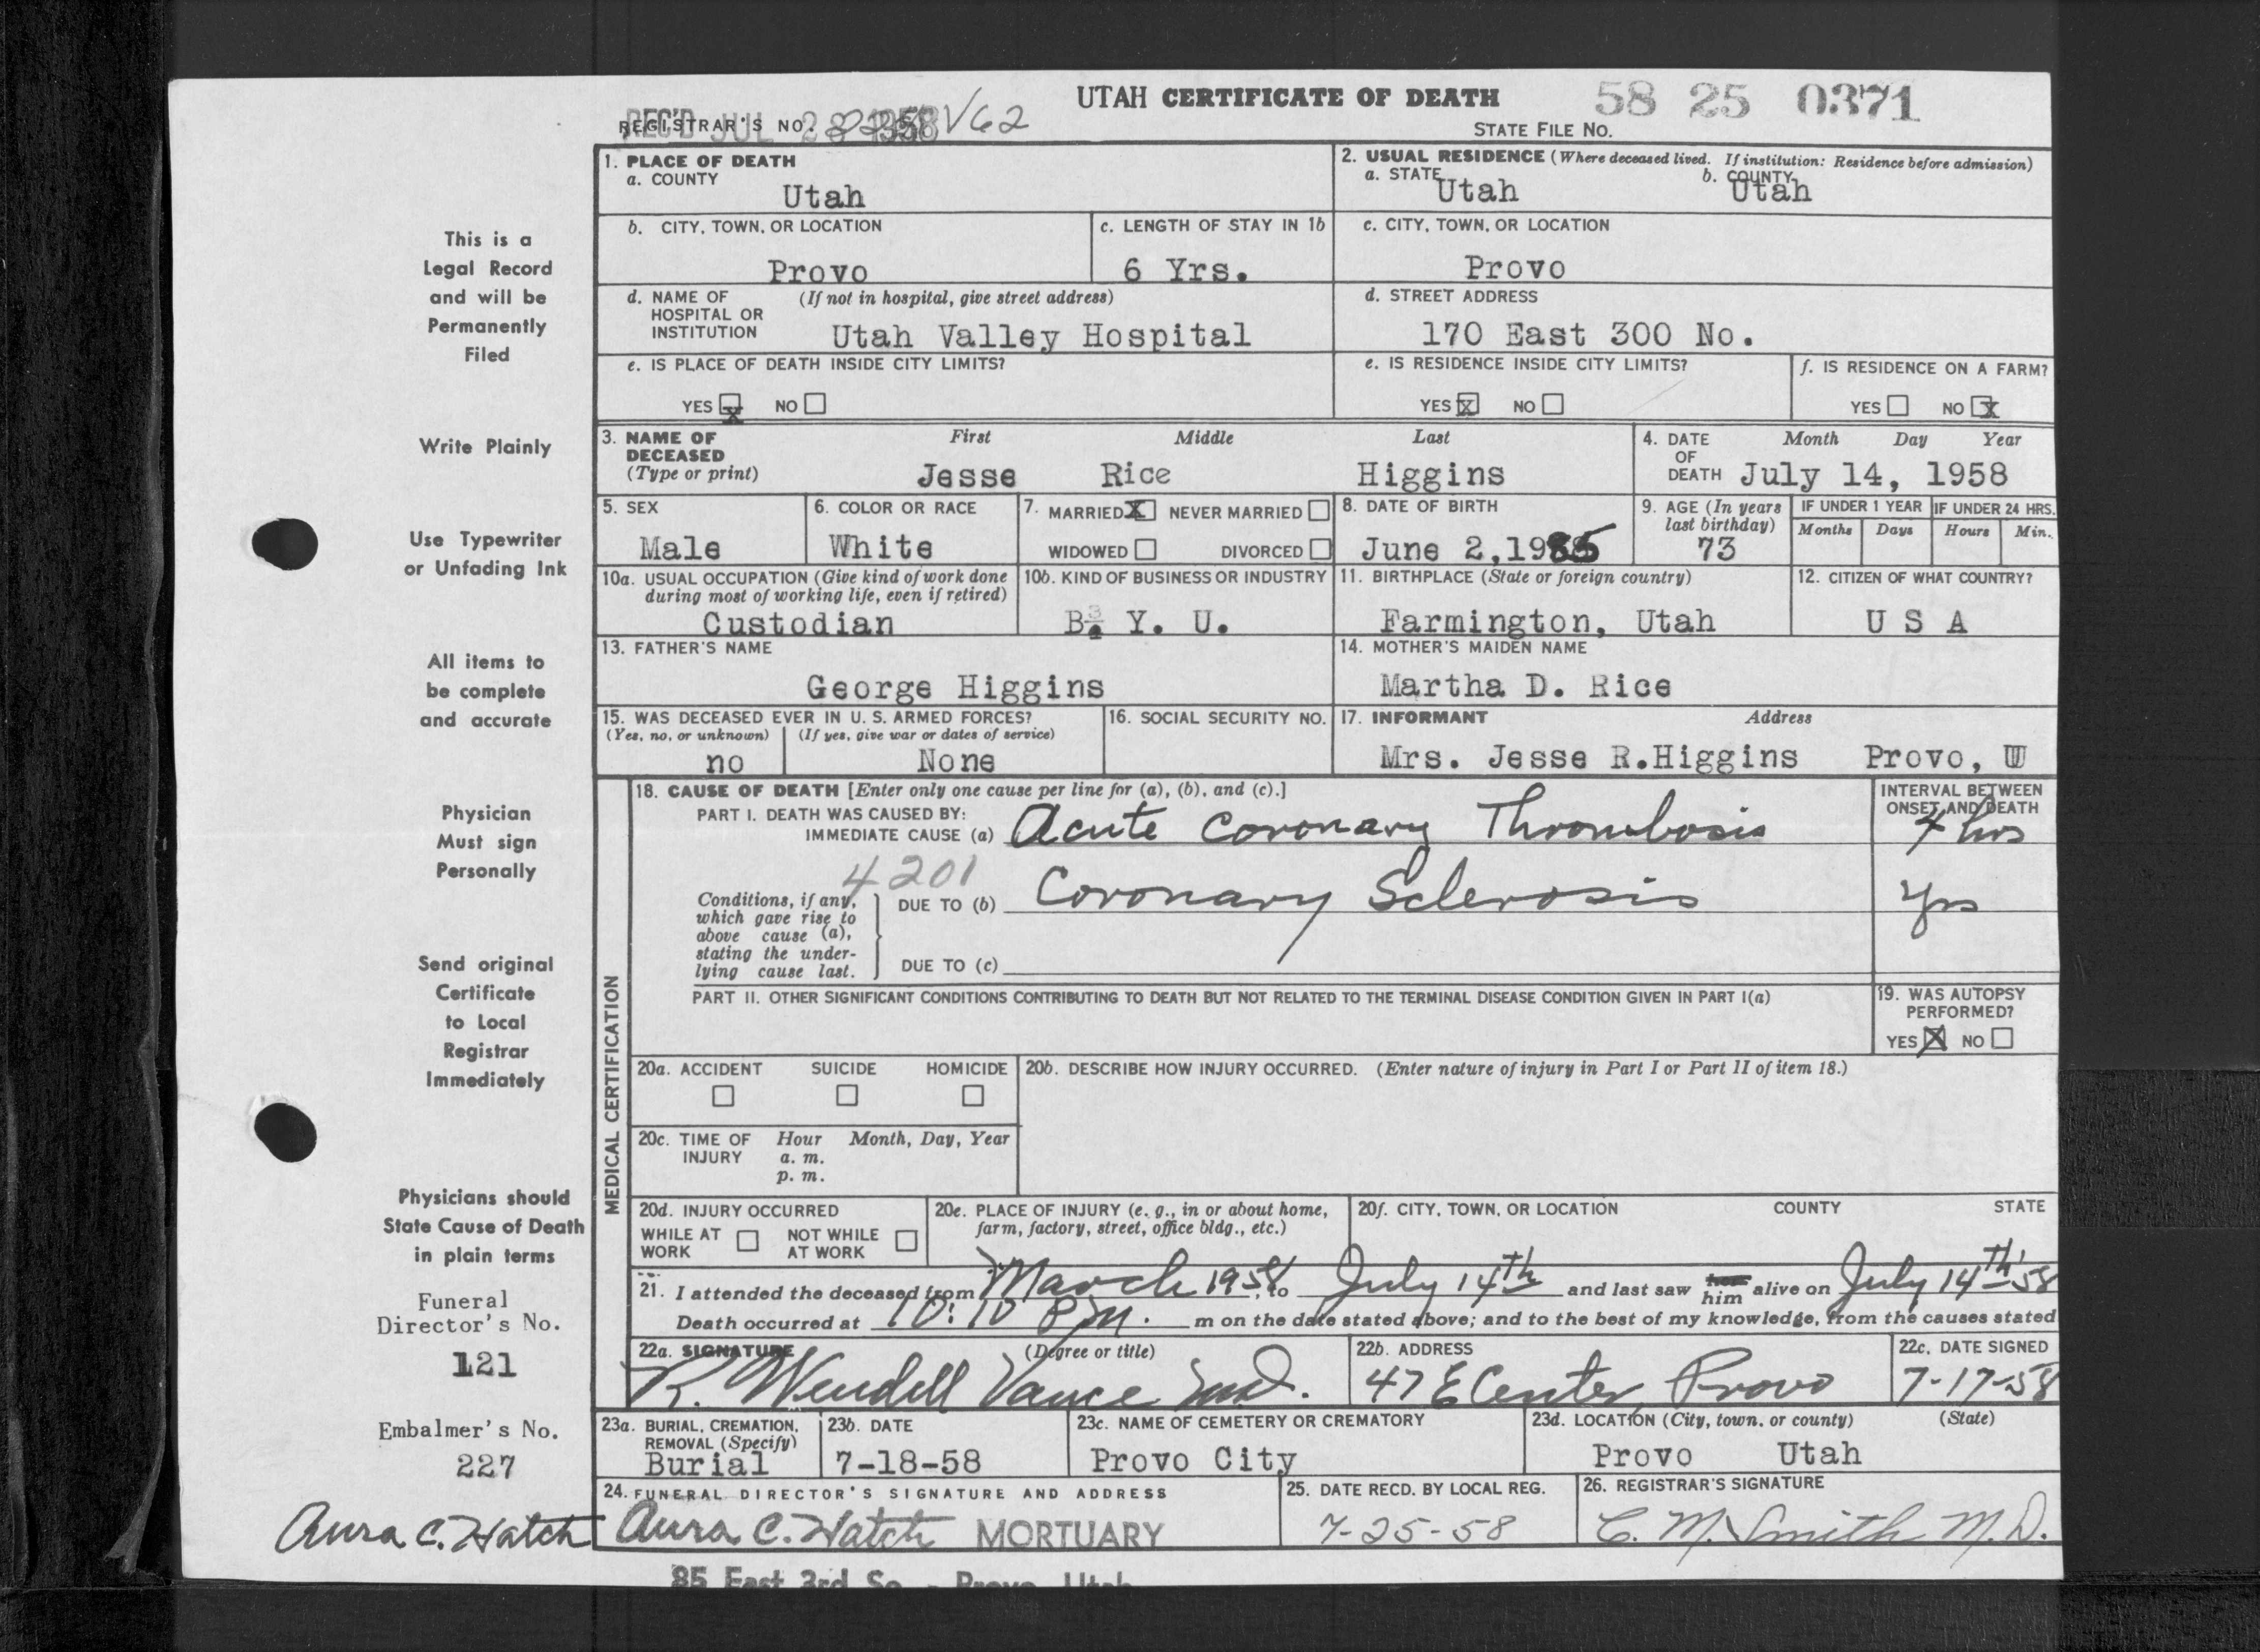 UTAH CERTIFICATE OF DEATH
58 25 0371
REC'D JUL 28 1958
REGISTRAR'S NO. V62
STATE FILE NO.
1. PLACE OF DEATH
a. COUNTY
Utah
2. USUAL RESIDENCE (Where deceased lived. If institution: Residence before admission)
a. STATE Utah b. COUNTY Utah
b. CITY, TOWN, OR LOCATION
Provo
c. LENGTH OF STAY IN 1b
6 Yrs.
c. CITY, TOWN, OR LOCATION
Provo
d. NAME OF HOSPITAL OR INSTITUTION (If not in hospital, give street address)
Utah Valley Hospital
d. STREET ADDRESS
170 East 300 No.
e. IS PLACE OF DEATH INSIDE CITY LIMITS?
YES X NO
e. IS RESIDENCE INSIDE CITY LIMITS?
YES X NO
f. IS RESIDENCE ON A FARM?
YES NO X
3. NAME OF DECEASED (Type or print)
First Middle Last
Jesse Rice Higgins
4. DATE OF DEATH Month Day Year
July 14, 1958
5. SEX
Male
6. COLOR OR RACE
White
7. MARRIED X NEVER MARRIED
WIDOWED DIVORCED
8. DATE OF BIRTH
June 2,1985
9. AGE (In years last birthday)
73
IF UNDER 1 YEAR
Months Days
IF UNDER 24 HRS.
Hours Min.
10a. USUAL OCCUPATION (Give kind of work done during most of working life, even if retired)
Custodian
10b. KIND OF BUSINESS OR INDUSTRY
B. Y. U.
11. BIRTHPLACE (State or foreign country)
Farmington, Utah
12. CITIZEN OF WHAT COUNTRY?
U S A
13. FATHER'S NAME
George Higgins
14. MOTHER'S MAIDEN NAME
Martha D. Rice
15. WAS DECEASED EVER IN U. S. ARMED FORCES?
(Yes, no, or unknown) (If yes, give war or dates of service)
no None
16. SOCIAL SECURITY NO.
17. INFORMANT Address
Mrs. Jesse R.Higgins Provo, U
MEDICAL CERTIFICATION
18. CAUSE OF DEATH [Enter only one cause per line for (a), (b), and (c).]
INTERVAL BETWEEN ONSET AND DEATH
PART I. DEATH WAS CAUSED BY:
IMMEDIATE CAUSE (a) Acute Coronary Thrombosis 4 hrs
4201
Conditions, if any, which gave rise to above cause (a), stating the underlying cause last.
DUE TO (b) Coronary Sclerosis yrs
DUE TO (c)
PART II. OTHER SIGNIFICANT CONDITIONS CONTRIBUTING TO DEATH BUT NOT RELATED TO THE TERMINAL DISEASE CONDITION GIVEN IN PART I(a)
19. WAS AUTOPSY PERFORMED?
YES X NO
20a. ACCIDENT SUICIDE HOMICIDE
20b. DESCRIBE HOW INJURY OCCURRED. (Enter nature of injury in Part I or Part II of item 18.)
20c. TIME OF INJURY Hour Month, Day, Year
a. m.
p. m.
20d. INJURY OCCURRED
WHILE AT WORK NOT WHILE AT WORK
20e. PLACE OF INJURY (e. g., in or about home, farm, factory, street, office bldg., etc.)
20f. CITY, TOWN, OR LOCATION COUNTY STATE
21. I attended the deceased from March 1958, to July 14th and last saw her him alive on July 14th 58
Death occurred at 10:10 PM. m on the date stated above; and to the best of my knowledge, from the causes stated
22a. SIGNATURE (Degree or title)
R. Wendell Vance M.D.
22b. ADDRESS
47 E Center, Provo
22c. DATE SIGNED
7-17-58
23a. BURIAL, CREMATION, REMOVAL (Specify)
Burial
23b. DATE
7-18-58
23c. NAME OF CEMETERY OR CREMATORY
Provo City
23d. LOCATION (City, town, or county) (State)
Provo Utah
24. FUNERAL DIRECTOR'S SIGNATURE AND ADDRESS
Aura C. Hatch MORTUARY
85 East 3rd So. - Provo, Utah
25. DATE RECD. BY LOCAL REG.
7-25-58
26. REGISTRAR'S SIGNATURE
C. M. Smith M.D.
This is a
Legal Record
and will be
Permanently
Filed
Write Plainly
Use Typewriter
or Unfading Ink
All items to
be complete
and accurate
Physician
Must sign
Personally
Send original
Certificate
to Local
Registrar
Immediately
Physicians should
State Cause of Death
in plain terms
Funeral
Director's No.
121
Embalmer's No.
227
Aura C. Hatch